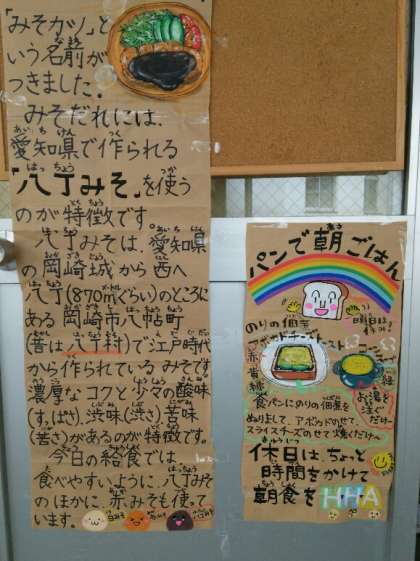 「みそカツ」と
いう名前が
つきました。
みそだれには、
愛知県で作られる
「八丁みそ」を使う
のが特徴です。
八丁みそは、愛知県
の岡崎城から西へ
八丁(870mぐらい)のところに
ある岡崎市八帖町
(昔は八丁村)で江戸時代
から作られているみそです。
濃厚なコクと少々の酸味
(すっぱさ)、渋味(渋さ)、苦味
(苦さ)があるのが特徴です。
今日の給食では、
食べやすいように、八丁みそ
のほかに、赤みそも使って
います。
パンで朝ごはん
のりの佃煮
アボカドチーズトースト
赤
黄
緑
お湯を
注ぐ
だけ
食パンにのりの佃煮を
ぬり広して、アボカドのせて、
スライスチーズのせて焼くだけ
休日は、ちょっと
時間をかけて
朝食を HHA